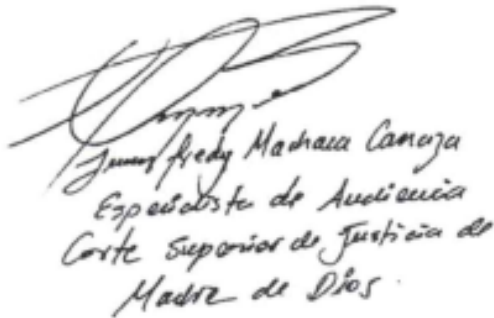 Fredy Machaca Carcaza
Especialista de Audiencia
Corte Superior de Justicia de
Madre de Dios.